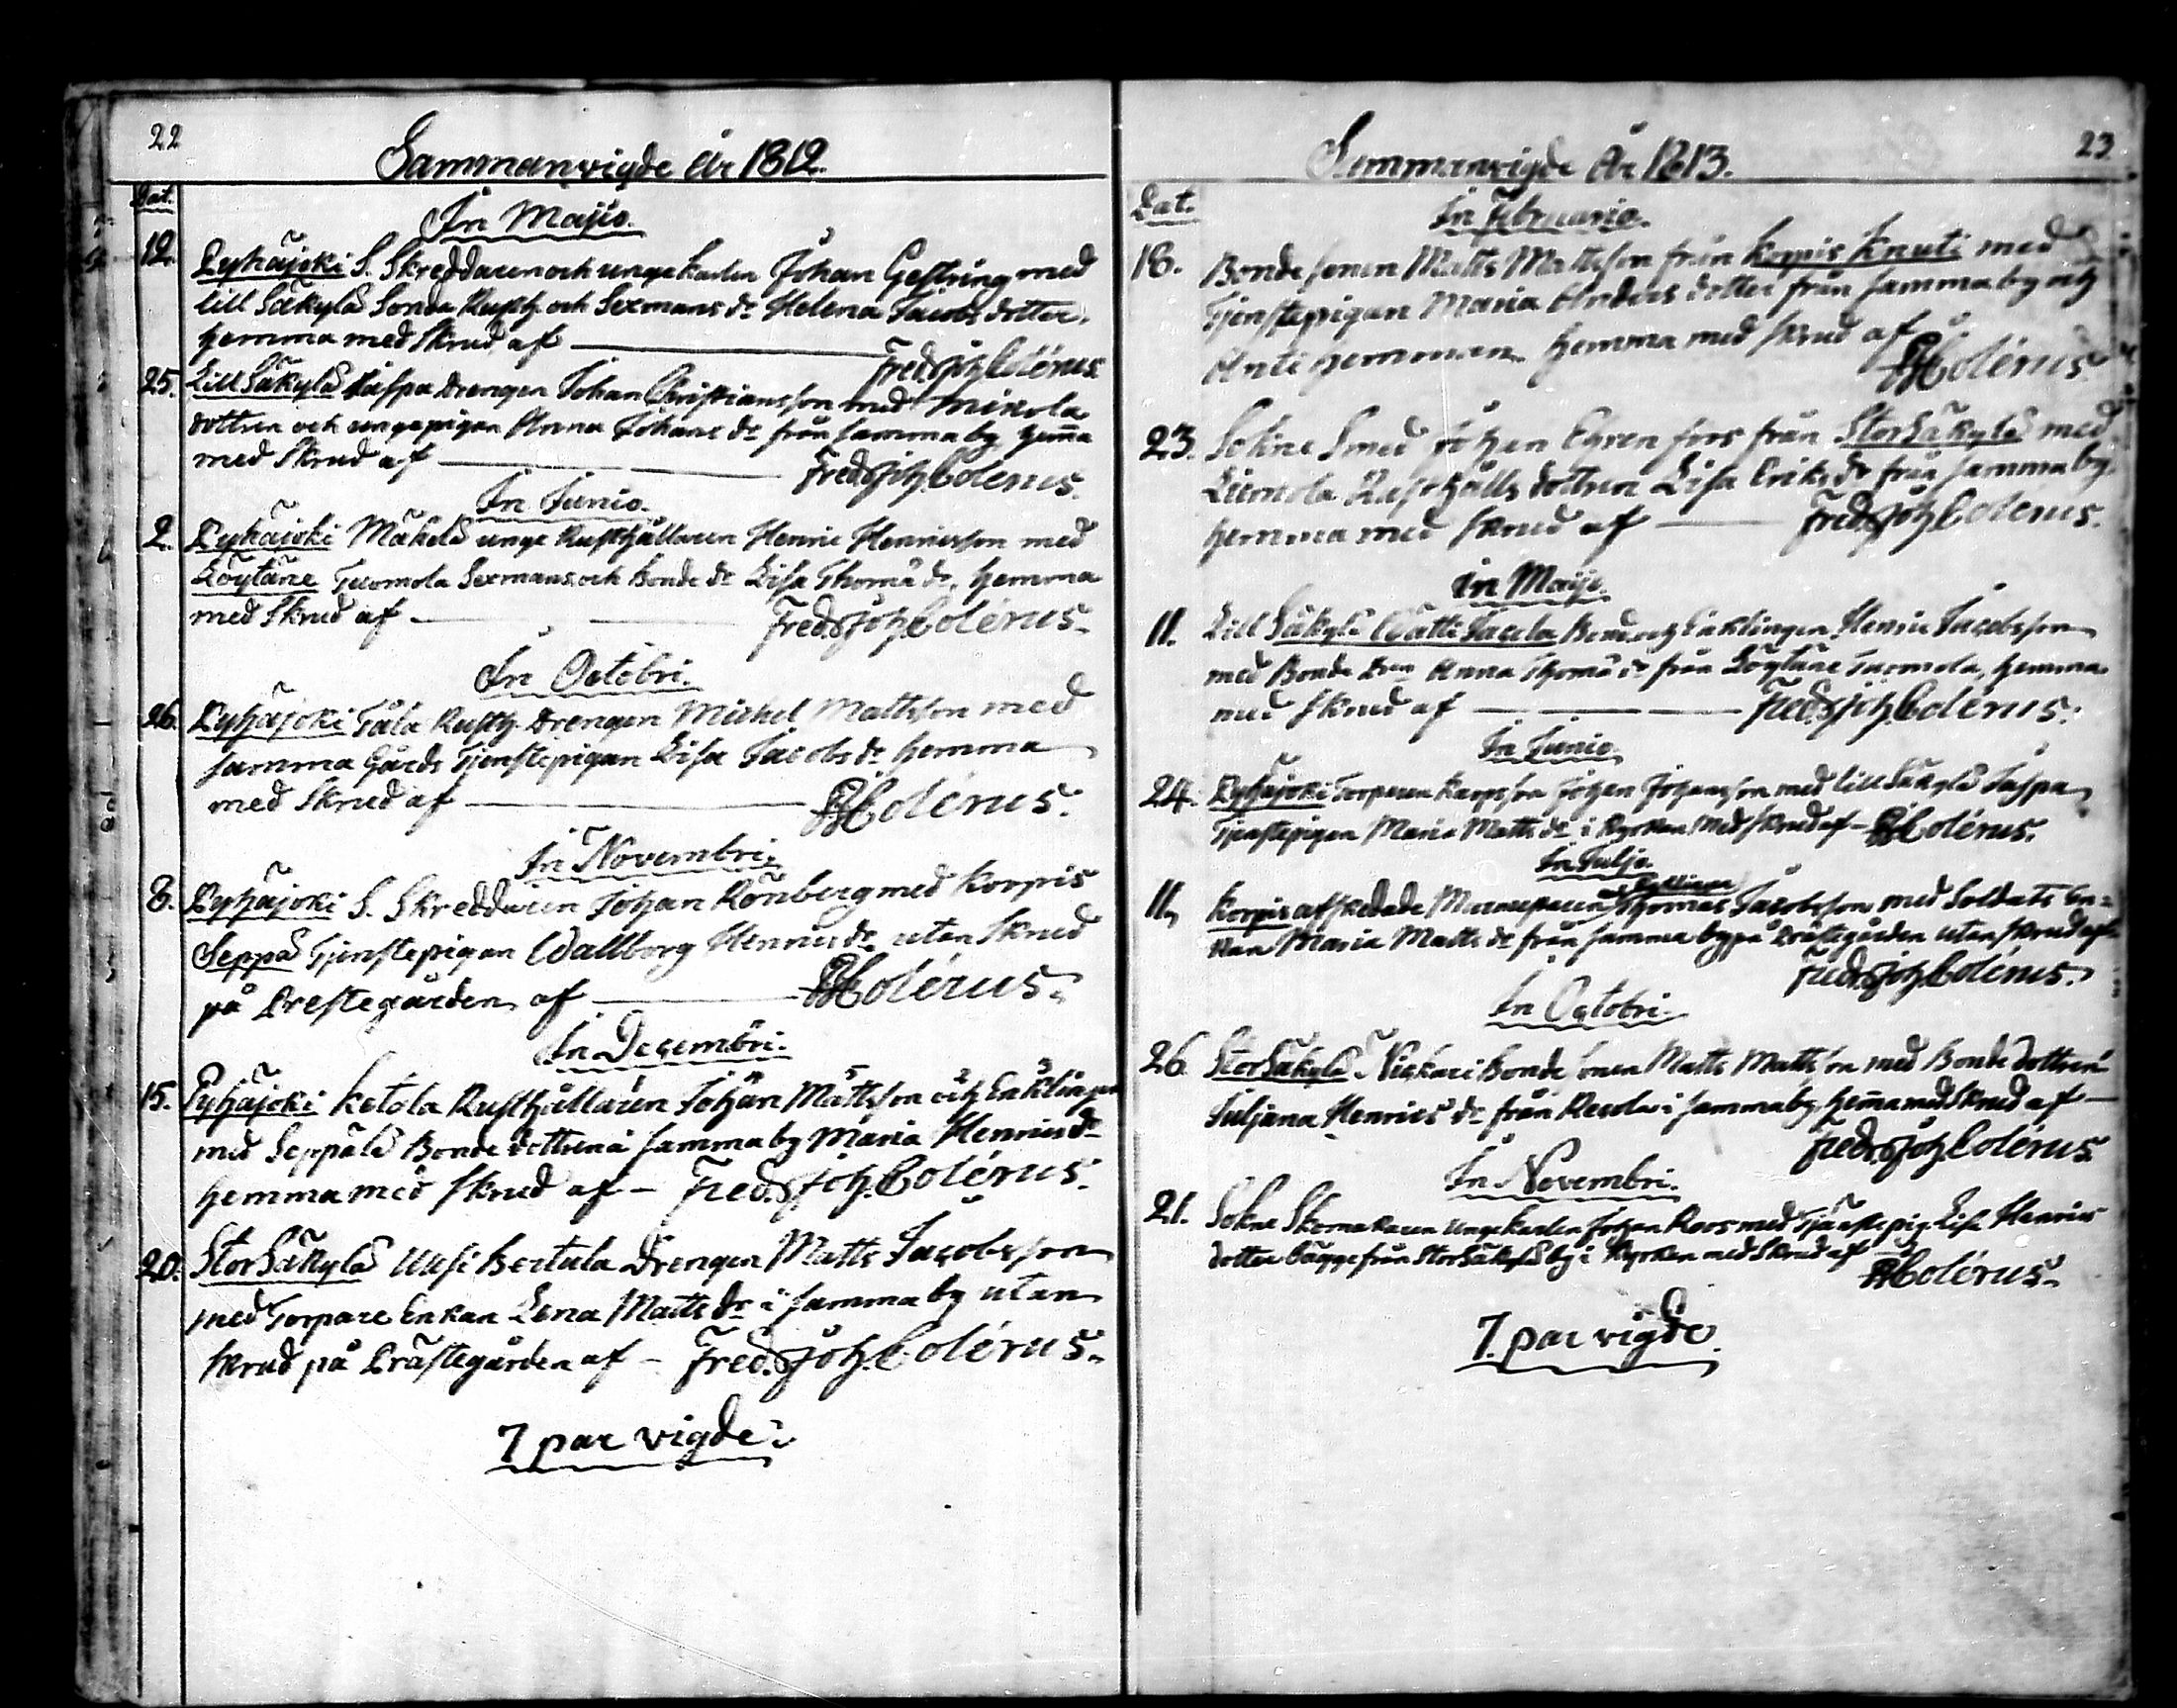 22
Sammanvigde år 1812.
Dat.
In Majo.
12. Pyhäjoki S. Skreddaren och unge karlen Johan Gestring med
lill Säkylä Sonda Rusth. och Sexmans dr Helena Jacobs dotter.
hemma med Skrud af Fred. Joh. Colérus
25. Lill Säkylä Jaspa Drengen Johan Christiansson med Mikola
dottren och ungepigan Anna Johans dr från samma by hem̄a
med Skrud af Fred. Joh. Colerus.
In Junio.
2. Pyhäjoki Mäkelä unge Rusthållaren Henric Henricsson med
Löytäne Tuomola Sexmans och Bonde dr Lisa Thomæ dr. hemma
med Skrud af Fred. Joh. Colérus.
In Octobri.
26. Pyhäjoki Tåla Rusth. Drengen Michel Mattsson med
samma Gårds Tjenstepigan Lisa Jacobs dr hemma
med Skrud af FJColérus.
In Novembri.
8. Pyhäjoki S. Skreddaren Johan Rönberg med Korpis
Seppä Tjenstepigan Wallborg Henrics dr utan Skrud
på Prestegården af FJColérus.
In Decembri.
15. Pyhäjoki Ketola Rusthållaren Johan Mattsson och Enklingen
med Seppälä Bonde dottren i samma by Maria Henrics dr
hemma med Skrud af – Fred. Joh. Colérus.
20. Stor Säkylä Uusi Bertula Drengen Matts Jacobsson
med Torpare Enkan Lena Matts dr i samma by utan
skrud på Prästegården af – Fred. Joh. Colérus.
7 par vigde.
23
Sammanvigde År 1813.
Dat.
In Februario.
18. Bonde sonen Matts Mattsson från Korpis Knuti med
Tjenstepigan Maria Anders dotter från samma by och
Anti hemman. hemma med skrud af
FJColérus
23. Sokne Smed Johan Egren fors från Stor Säkylä med
Liemola Rusthålls dottren Lisa Eriks dr från samma by.
hemma med skrud af Fred. Joh. Colerus.
in Majo.
11. Lill Säkylä Wätti Jacola Bond. och Enklingen Henric Jacobsson
med Bonde Dren Anna Thomæ dr från Löytäne Tuomola, hemma
med skrud af Fred. Joh. Colérus.
In Junio.
24. Pyhäjoki Torparen Johan Johansson med lill Säkylä Jaspa
Tjenstepigan Maria Matts dr i Kyrkan med skrud af – FJColérus.
In Julio.
Enklingen
11. Korpis afskedade Thomas Jacobsson med Soldats En=
kan Maria Matts dr från samma by på Prästegården utan skrud af
Fred. Joh. Colérus.
In Octobri.
26. Stor Säkylä Niskari Bonde sonen Matts Mattson med Bonde dottren
Juliana Henrics dr från i samma by, hem̄a med skrud af –
Fred. Joh. Colérus
In Novembri.
21. Sokne Skomakaren Unge karlen Johan Roos med Tjänstepig. Lisa Henrics
dotter bägge från Stor Säkylä by i Kyrkan med skrud af
FJColérus.
7. par vigde.